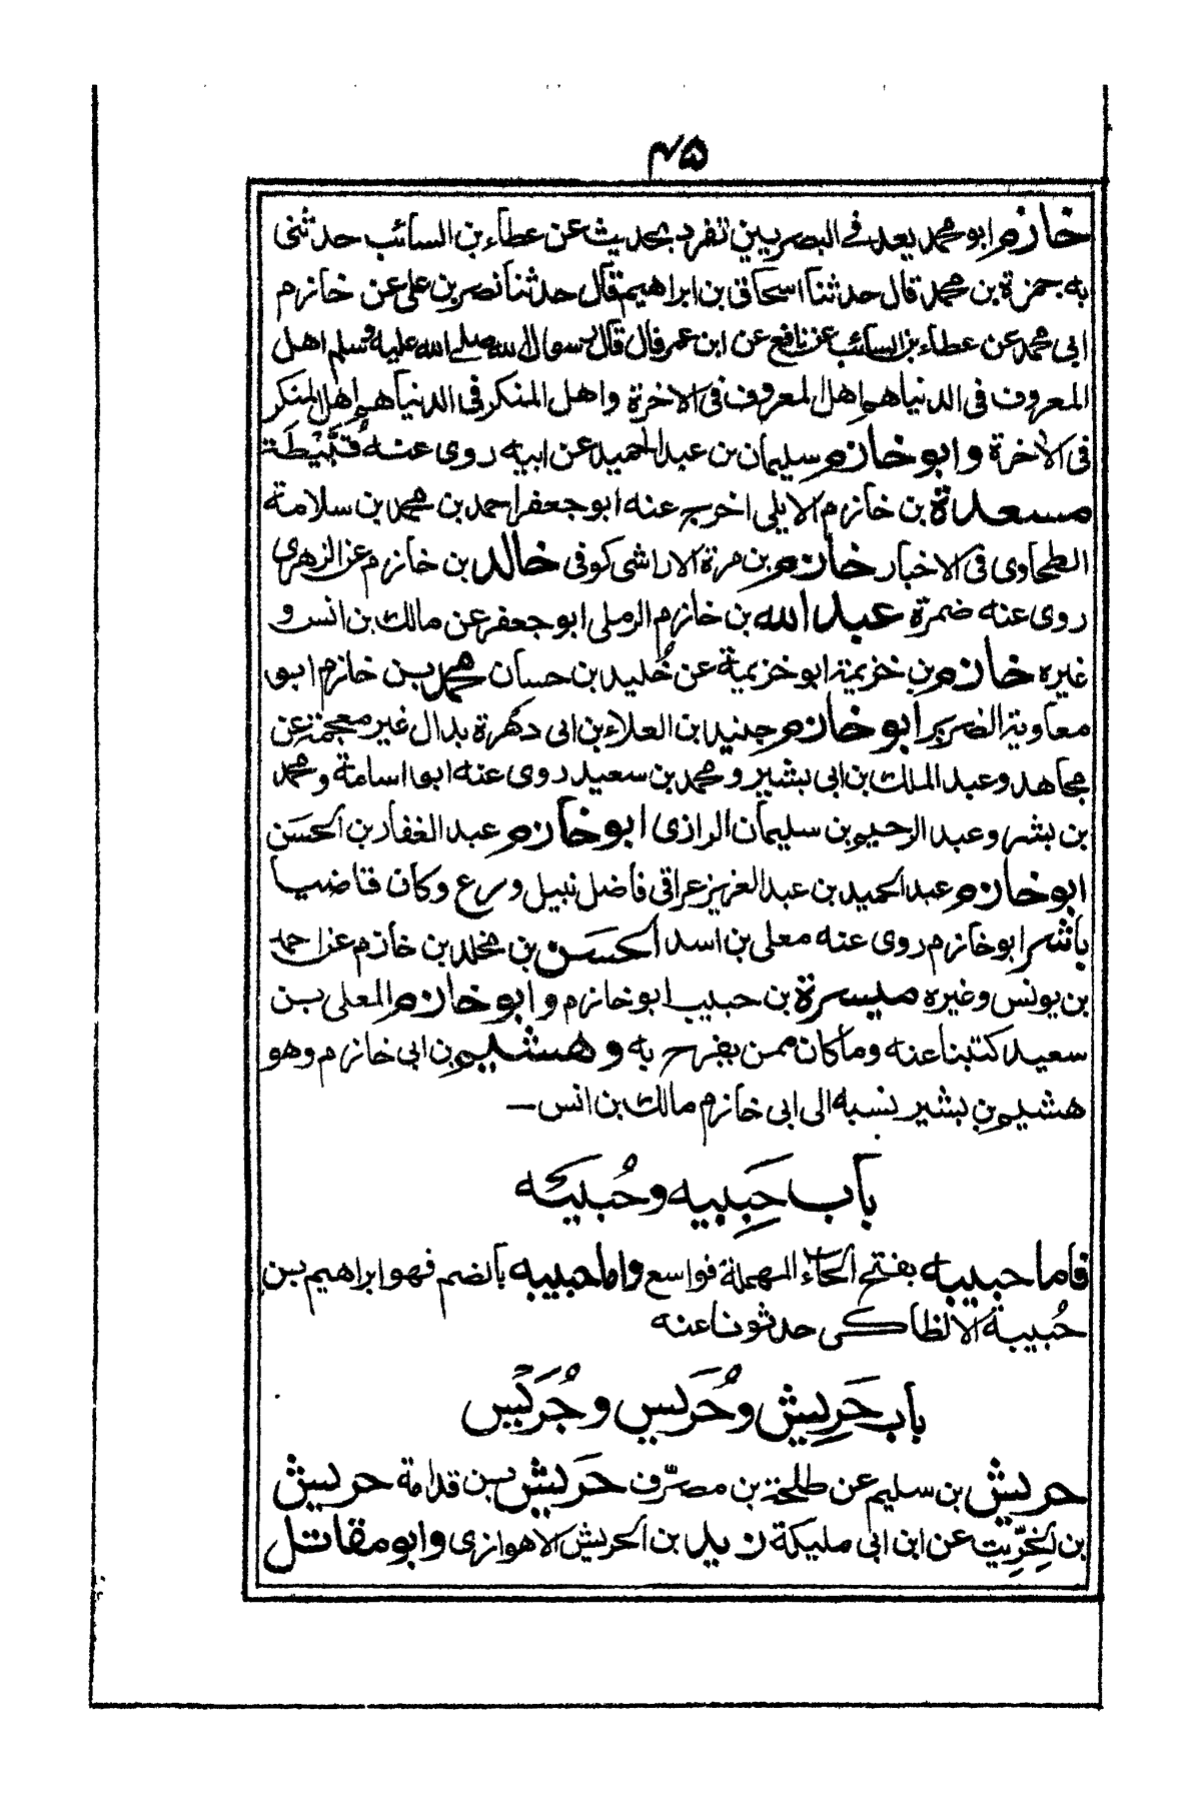 ۴۵
خازم ابو محمد يعد في البصريين تفرد بحديث عن عطاء بن السائب حدثنى
به حمزة بن محمد قال حدثنا اسحاق بن ابراهيم قال حدثنا نصر بن على عن خازم
ابى محمد عن عطاء بن السائب عن نافع عن ابن عمر قال قال رسول الله صلى الله عليه وسلم اهل
المعروف فى الدنيا هم اهل المعروف فى الاخرة واهل المنكر فى الدنيا هم اهل المنكر
فى الاخرة وابو خازم سليمان بن عبد الحميد عن ابيه روى عنه قُبَّيْطَة
مسعدة بن خازم الايلى اخرج عنه ابو جعفر احمد بن محمد بن سلامة
الطحاوى فى الاخبار خازم بن مرة الاراشى كوفى خالد بن خازم عن الزهرى
روى عنه ضمرة عبد الله بن خازم الرملى ابو جعفر عن مالك بن انس و
غيره خازم بن خزيمة ابو خزيمة عن خُليد بن حسان محمد بن خازم ابو
معاوية الضرير ابو خازم جنيد ابن العلاء بن ابى دَهْرة بدال غير معجمة عن
مجاهد وعبد الملك بن ابى بشير ومحمد بن سعيد روى عنه ابو اسامة ومحمد
بن بشر وعبد الرحيم بن سليمان الرازى ابو خازم عبد الغفار بن الحَسَن
ابو خازم عبد الحميد بن عبد العزيز عراقى فاضل نبيل ورع وكان قاضيا
باشر ابو خازم روى عنه معلى بن اسد الحسن بن مخلد بن خازم عن احمد
بن يونس وغيره ميسرة بن حبيب ابو خازم وابو خازم المعلى بن
سعيد كتبنا عنه وما كان ممن يفرح به وهشيم بن ابى خازم وهو
هشيم بن بشير نسبه الى ابى خازم مالك بن انس —
باب حَبِيبه وحُبَيبَه
فاما حبيبه بفتح الحاء المهملة فواسع واما حبيبه بالضم فهو ابراهيم بن
حُبيبة الانطاكى حدثونا عنه
باب حَرِيش وحُرَيس وجُرَيس
حريش بن سليم عن طلحة بن مصرّف حَريش بن قدامة حريش
بن الخِرِّيت عن ابن ابى مليكة زيد بن الحريش الاهوازى وابو مقاتل